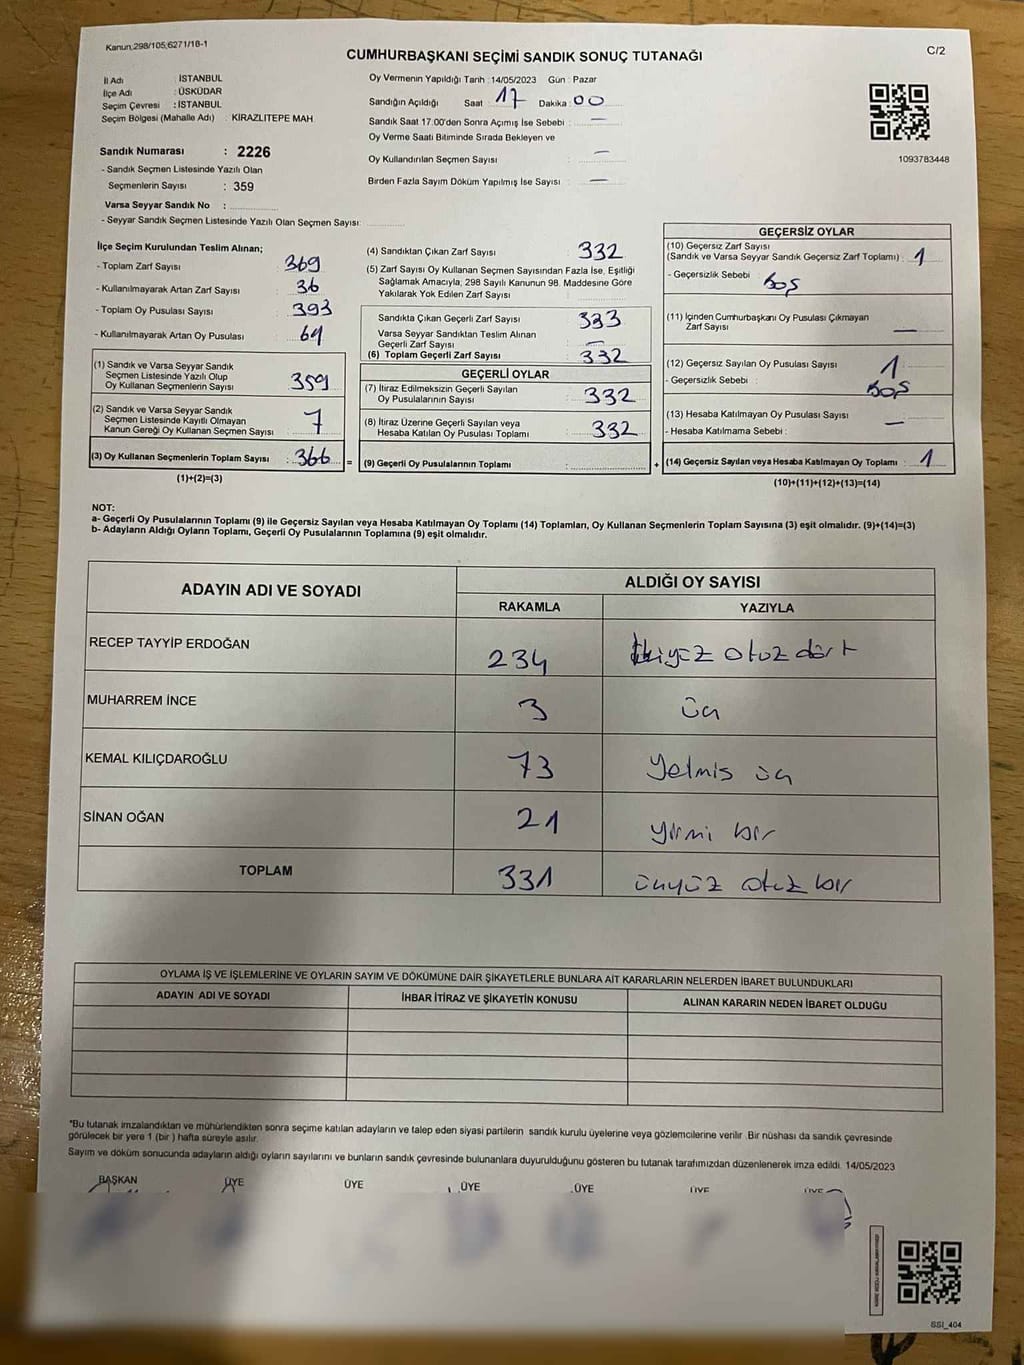 Kanun,298/105;6271/18-1
C/2
CUMHURBAŞKANI SEÇİMİ SANDIK SONUÇ TUTANAĞI
İl Adı : İSTANBUL
İlçe Adı : ÜSKÜDAR
Seçim Çevresi : İSTANBUL
Seçim Bölgesi (Mahalle Adı) : KİRAZLITEPE MAH
Sandık Numarası : 2226
- Sandık Seçmen Listesinde Yazılı Olan
Seçmenlerin Sayısı : 359
Varsa Seyyar Sandık No :
- Seyyar Sandık Seçmen Listesinde Yazılı Olan Seçmen Sayısı:
Oy Vermenin Yapıldığı Tarih :14/05/2023 Gün : Pazar
Sandığın Açıldığı Saat 17 Dakika : 00
Sandık Saat 17:00'den Sonra Açımış İse Sebebi : —
Oy Verme Saati Bitiminde Sırada Bekleyen ve
Oy Kullandırılan Seçmen Sayısı : —
Birden Fazla Sayım Döküm Yapılmış İse Sayısı : —
1093783448
İlçe Seçim Kurulundan Teslim Alınan;
- Toplam Zarf Sayısı : 369
- Kullanılmayarak Artan Zarf Sayısı : 36
- Toplam Oy Pusulası Sayısı : 393
- Kullanılmayarak Artan Oy Pusulası : 61
(1) Sandık ve Varsa Seyyar Sandık
Seçmen Listesinde Yazılı Olup
Oy Kullanan Seçmenlerin Sayısı : 359
(2) Sandık ve Varsa Seyyar Sandık
Seçmen Listesinde Kayıtlı Olmayan
Kanun Gereği Oy Kullanan Seçmen Sayısı : 7
(3) Oy Kullanan Seçmenlerin Toplam Sayısı : 366 =
(1)+(2)=(3)
(4) Sandıktan Çıkan Zarf Sayısı : 332
(5) Zarf Sayısı Oy Kullanan Seçmen Sayısından Fazla İse, Eşitliği
Sağlamak Amacıyla, 298 Sayılı Kanunun 98. Maddesine Göre
Yakılarak Yok Edilen Zarf Sayısı :
Sandıkta Çıkan Geçerli Zarf Sayısı : 333
Varsa Seyyar Sandıktan Teslim Alınan
Geçerli Zarf Sayısı : —
(6) Toplam Geçerli Zarf Sayısı : 332
GEÇERLİ OYLAR
(7) İtiraz Edilmeksizin Geçerli Sayılan
Oy Pusulalarının Sayısı : 332
(8) İtiraz Üzerine Geçerli Sayılan veya
Hesaba Katılan Oy Pusulası Toplamı : 332
(9) Geçerli Oy Pusulalarının Toplamı : +
GEÇERSİZ OYLAR
(10) Geçersiz Zarf Sayısı
(Sandık ve Varsa Seyyar Sandık Geçersiz Zarf Toplamı) : 1
- Geçersizlik Sebebi : boş
(11) İçinden Cumhurbaşkanı Oy Pusulası Çıkmayan
Zarf Sayısı : —
(12) Geçersiz Sayılan Oy Pusulası Sayısı : 1
- Geçersizlik Sebebi : Boş
(13) Hesaba Katılmayan Oy Pusulası Sayısı :
- Hesaba Katılmama Sebebi : —
(14) Geçersiz Sayılan veya Hesaba Katılmayan Oy Toplamı : 1
(10)+(11)+(12)+(13)=(14)
NOT:
a- Geçerli Oy Pusulalarının Toplamı (9) ile Geçersiz Sayılan veya Hesaba Katılmayan Oy Toplamı (14) Toplamları, Oy Kullanan Seçmenlerin Toplam Sayısına (3) eşit olmalıdır. (9)+(14)=(3)
b- Adayların Aldığı Oyların Toplamı, Geçerli Oy Pusulalarının Toplamına (9) eşit olmalıdır.
ADAYIN ADI VE SOYADI
ALDIĞI OY SAYISI
RAKAMLA YAZIYLA
RECEP TAYYİP ERDOĞAN 234 İkiyüz otuz dört
MUHARREM İNCE 3 üç
KEMAL KILIÇDAROĞLU 73 Yetmis üç
SİNAN OĞAN 21 yirmi bir
TOPLAM 331 üçyüz otuz bir
OYLAMA İŞ VE İŞLEMLERİNE VE OYLARIN SAYIM VE DÖKÜMÜNE DAİR ŞİKAYETLERLE BUNLARA AİT KARARLARIN NELERDEN İBARET BULUNDUKLARI
ADAYIN ADI VE SOYADI İHBAR İTİRAZ VE ŞİKAYETİN KONUSU ALINAN KARARIN NEDEN İBARET OLDUĞU
*Bu tutanak imzalandıktan ve mühürlendikten sonra seçime katılan adayların ve talep eden siyasi partilerin sandık kurulu üyelerine veya gözlemcilerine verilir. Bir nüshası da sandık çevresinde
görülecek bir yere 1 (bir ) hafta süreyle asılır.
Sayım ve döküm sonucunda adayların aldığı oyların sayılarını ve bunların sandık çevresinde bulunanlara duyurulduğunu gösteren bu tutanak tarafımızdan düzenlenerek imza edildi. 14/05/2023
BAŞKAN ÜYE ÜYE ÜYE ÜYE ÜYE ÜYE
SSI_404